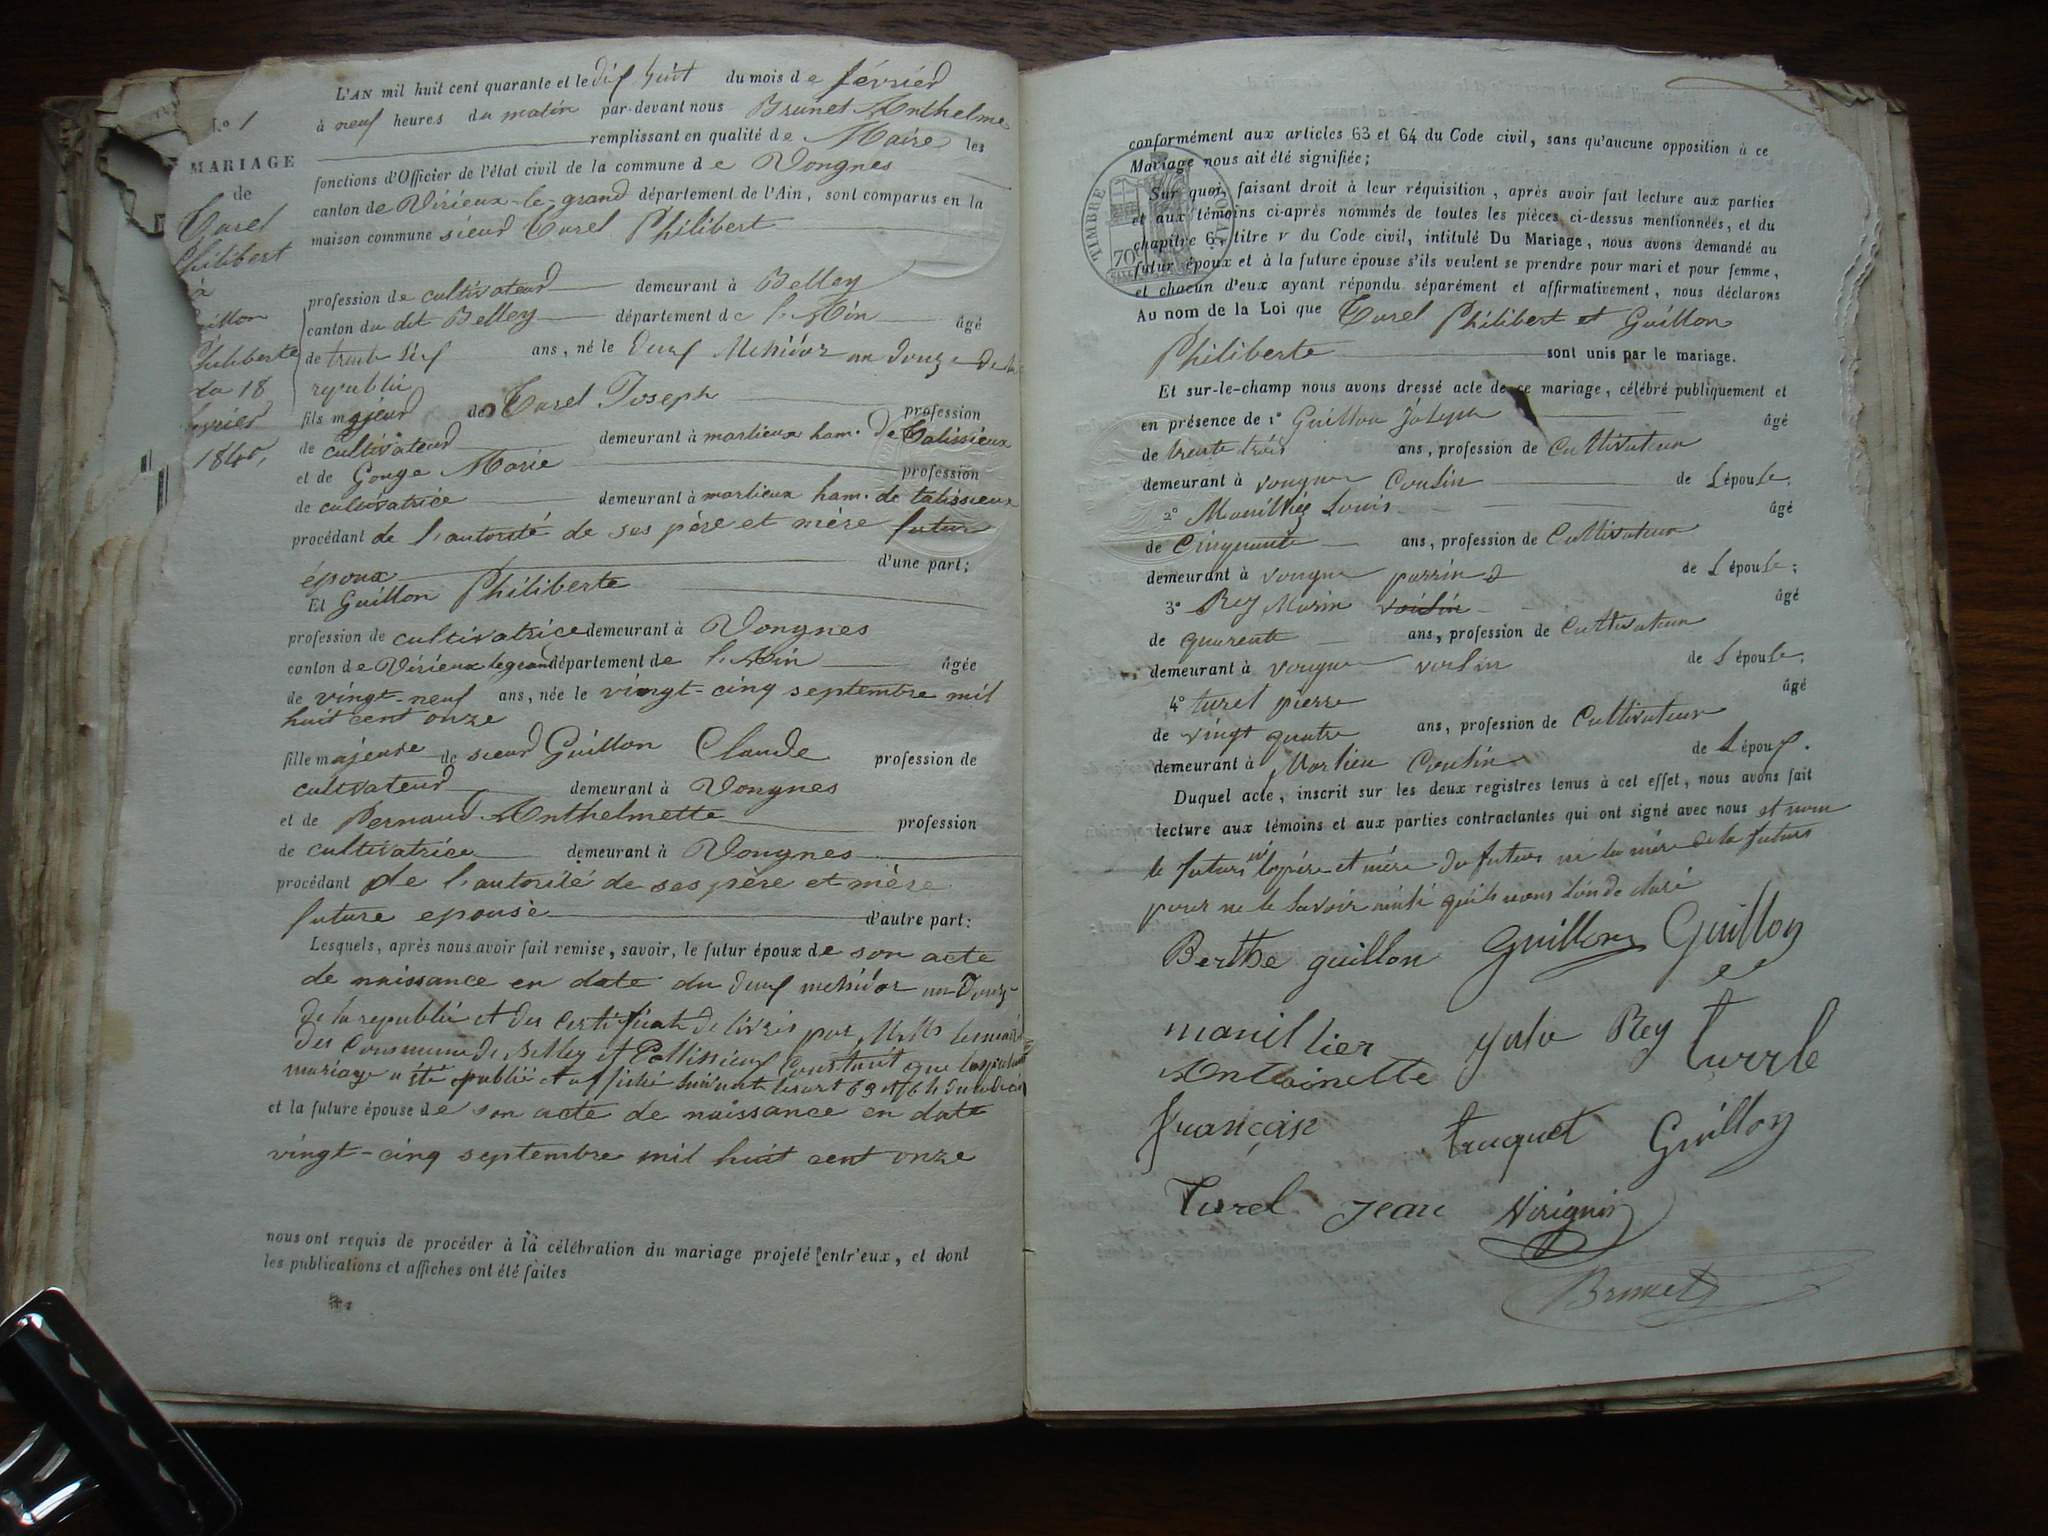 L'AN mil huit cent quarante et le dix huit du mois de février
No 1
à neuf heures du matin par-devant nous Brunet Anthelme
remplissant en qualité de Maire les
MARIAGE
fonctions d'Officier de l'état civil de la commune de Vongnes
de
canton de Virieux-le-grand département de l'Ain, sont comparus en la
Turel
maison commune sieur Turel Philibert
Philibert
à
profession de cultivateur demeurant à Belley
Guillon
canton du dit Belley département de l'Ain âgé
Philiberte
de trente six ans, né le Messidor an douze de la
du 18
republi
février
fils majeur de Turel Joseph profession
1840,
de cultivateur demeurant à marlieux ham. de Talissieux
et de Gouge Marie profession
de cultivatrice demeurant à marlieux ham. de talissieux
procédant de l'autorité de ses père et mère futur
époux d'une part;
Et Guillon Philiberte
profession de cultivatrice demeurant à Vongnes
canton de Virieux legrand département de l'Ain âgée
de vingt-neuf ans, née le vingt-cinq septembre mil
huit cent onze
fille majeure de sieur Guillon Claude profession de
cultivateur demeurant à Vongnes
et de Pernaud Anthelmette profession
de cultivatrice demeurant à Vongnes
procédant de l'autorité de ses père et mère
future epouse d'autre part:
Lesquels, après nous avoir fait remise, savoir, le futur époux de son acte
de naissance en date du messidor an Douze
de la republi et des Certificats delivrés par M.Ms les maires
des Communes de Belley et Constant que
mariage a été publié et affiché suivant les art 63 et 64 du code
et la future épouse de son acte de naissance en date
vingt-cinq septembre mil huit cent onze
nous ont requis de procéder à la célébration du mariage projeté entr'eux, et dont
les publications et affiches ont été faites
conformément aux articles 63 et 64 du Code civil, sans qu'aucune opposition à ce
Mariage nous ait été signifiée;
TIMBRE ROYAL
70c
Sur quoi, faisant droit à leur réquisition, après avoir fait lecture aux parties
et aux témoins ci-après nommés de toutes les pièces ci-dessus mentionnées, et du
chapitre 6, titre v du Code civil, intitulé Du Mariage, nous avons demandé au
futur époux et à la future épouse s'ils veulent se prendre pour mari et pour femme,
et chacun d'eux ayant répondu séparément et affirmativement, nous déclarons
Au nom de la Loi que Turel Philibert et Guillon
Philiberte sont unis par le mariage.
Et sur-le-champ nous avons dressé acte de ce mariage, célébré publiquement et
en présence de 1° Guillon Joseph âgé
de trente trois ans, profession de Cultivateur
demeurant à vongne Cousin de Lépouse;
2° Louis âgé
de Cinquante ans, profession de Cultivateur
demeurant à vongne de Lépouse;
3° Rey Marin voisin âgé
de quarente ans, profession de Cultivateur
demeurant à vongne voisin de Lépouse;
4° turel pierre âgé
de vingt quatre ans, profession de Cultivateur
demeurant à Marlieu Cousin de Lépoux.
Duquel acte, inscrit sur les deux registres tenus à cet effet, nous avons fait
lecture aux témoins et aux parties contractantes qui ont signé avec nous et non
le futur ni le père et mère du futur ni la mère de la future
pour ne le savoir ainsi qu'ils nous l'on declaré
Berthe guillon Guillon Guillon
manillier Rey Turrle
Antoinette
françoise truquet Guillon
Turel Jean Virignin
Brunet